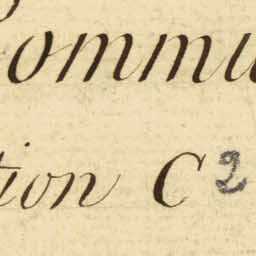 ommu
tion C 2